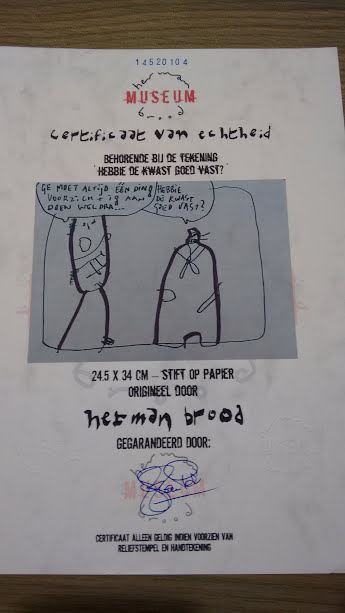 14520104
MUSEUM
certificaat van echtheid
BEHORENDE BIJ DE TEKENING
'HEBBIE DE KWAST GOED VAST?'
GE MOET ALTIJD ÉÉN DING
VOORZICHTIG AAN
DOEN WELDRA...
HEBBIE
DE KWAST
GOED VAST?
24.5 X 34 CM – STIFT OP PAPIER
ORIGINEEL DOOR
herman brood
GEGARANDEERD DOOR:
MUSEUM
CERTIFICAAT ALLEEN GELDIG INDIEN VOORZIEN VAN
RELIEFSTEMPEL EN HANDTEKENING